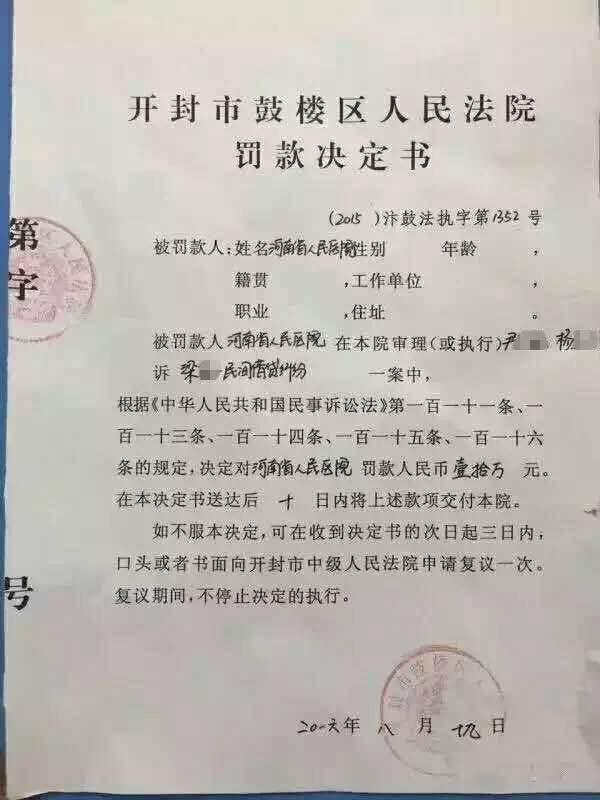 开封市鼓楼区人民法院
罚款决定书
(2015)汴鼓法执字第1352号
被罚款人:姓名河南省人民医院性别 年龄 ,
籍贯 ,工作单位 ,
职业 ,住址 。
被罚款人河南省人民医院在本院审理(或执行)尹 、杨
诉 梁 民间借贷纠纷 一案中,
根据《中华人民共和国民事诉讼法》第一百一十一条、一
百一十三条、一百一十四条、一百一十五条、一百一十六
条的规定,决定对河南省人民医院 罚款人民币壹拾万 元。
在本决定书送达后 十 日内将上述款项交付本院。
如不服本决定,可在收到决定书的次日起三日内,
口头或者书面向开封市中级人民法院申请复议一次。
复议期间,不停止决定的执行。
二〇一六年 八 月 十九 日
第
字
号